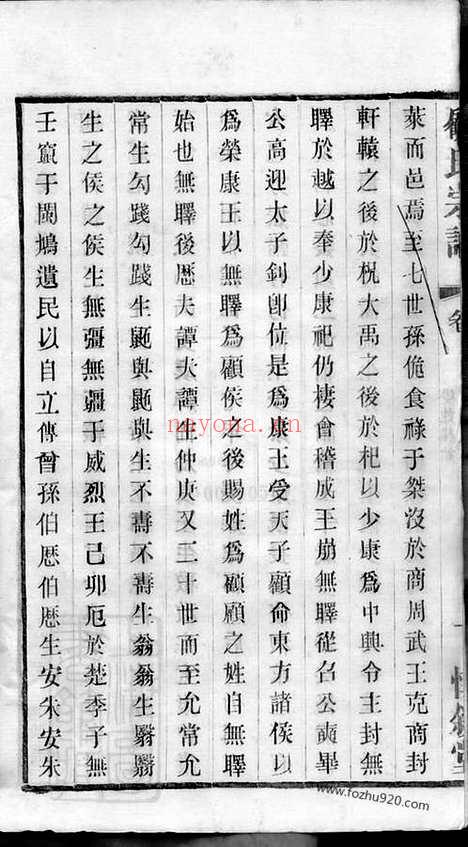 顧氏宗譜 卷
萊而邑焉至七世孫佹食祿于桀沒於商周武王克商封
軒轅之後於柷大禹之後於杞以少康爲中興令主封無
睪於越以奉少康祀仍棲會稽成王崩無睪從召公奭畢
公高迎太子釗卽位是爲康王受天子顧命東方諸侯以
爲榮康王以無睪爲顧侯之後賜姓爲顧顧之姓自無睪
始也無睪後歷夫譚夫譚生仲庚又三十世而至允常允
常生勾踐勾踐生鼫與鼫與生不壽不壽生翁翁生翳翳
生之侯之侯生無彊無彊于威烈王己卯厄於楚季子無
壬竄于閩鳩遺民以自立傳曾孫伯歷伯歷生安朱安朱
nayona.cn
www.fozhu920.com